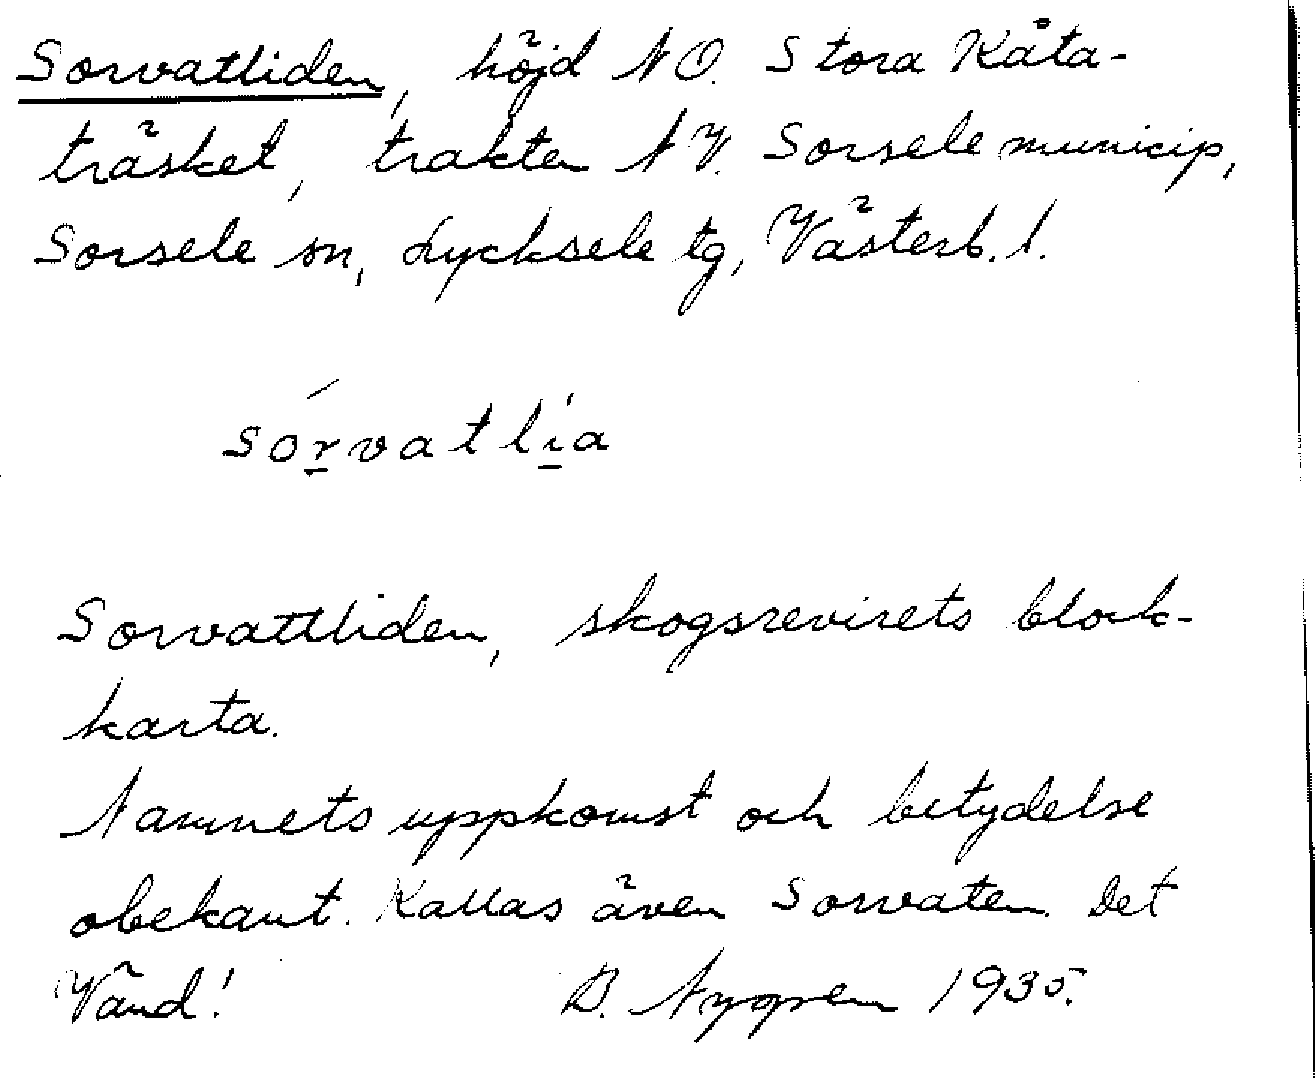 Sorvattliden, höjd NO. Stora Kåta-
träsket, trakten NV. Sorsele municip,
Sorsele sn, Lycksele tg, Västerb. l.
sórvatlia
Sorvattliden, skogsrevirets block-
karta.
Namnets uppkomst och betydelse
obekant. Kallas även Sorvaten. Det
Vänd! B. Nygren 1935.